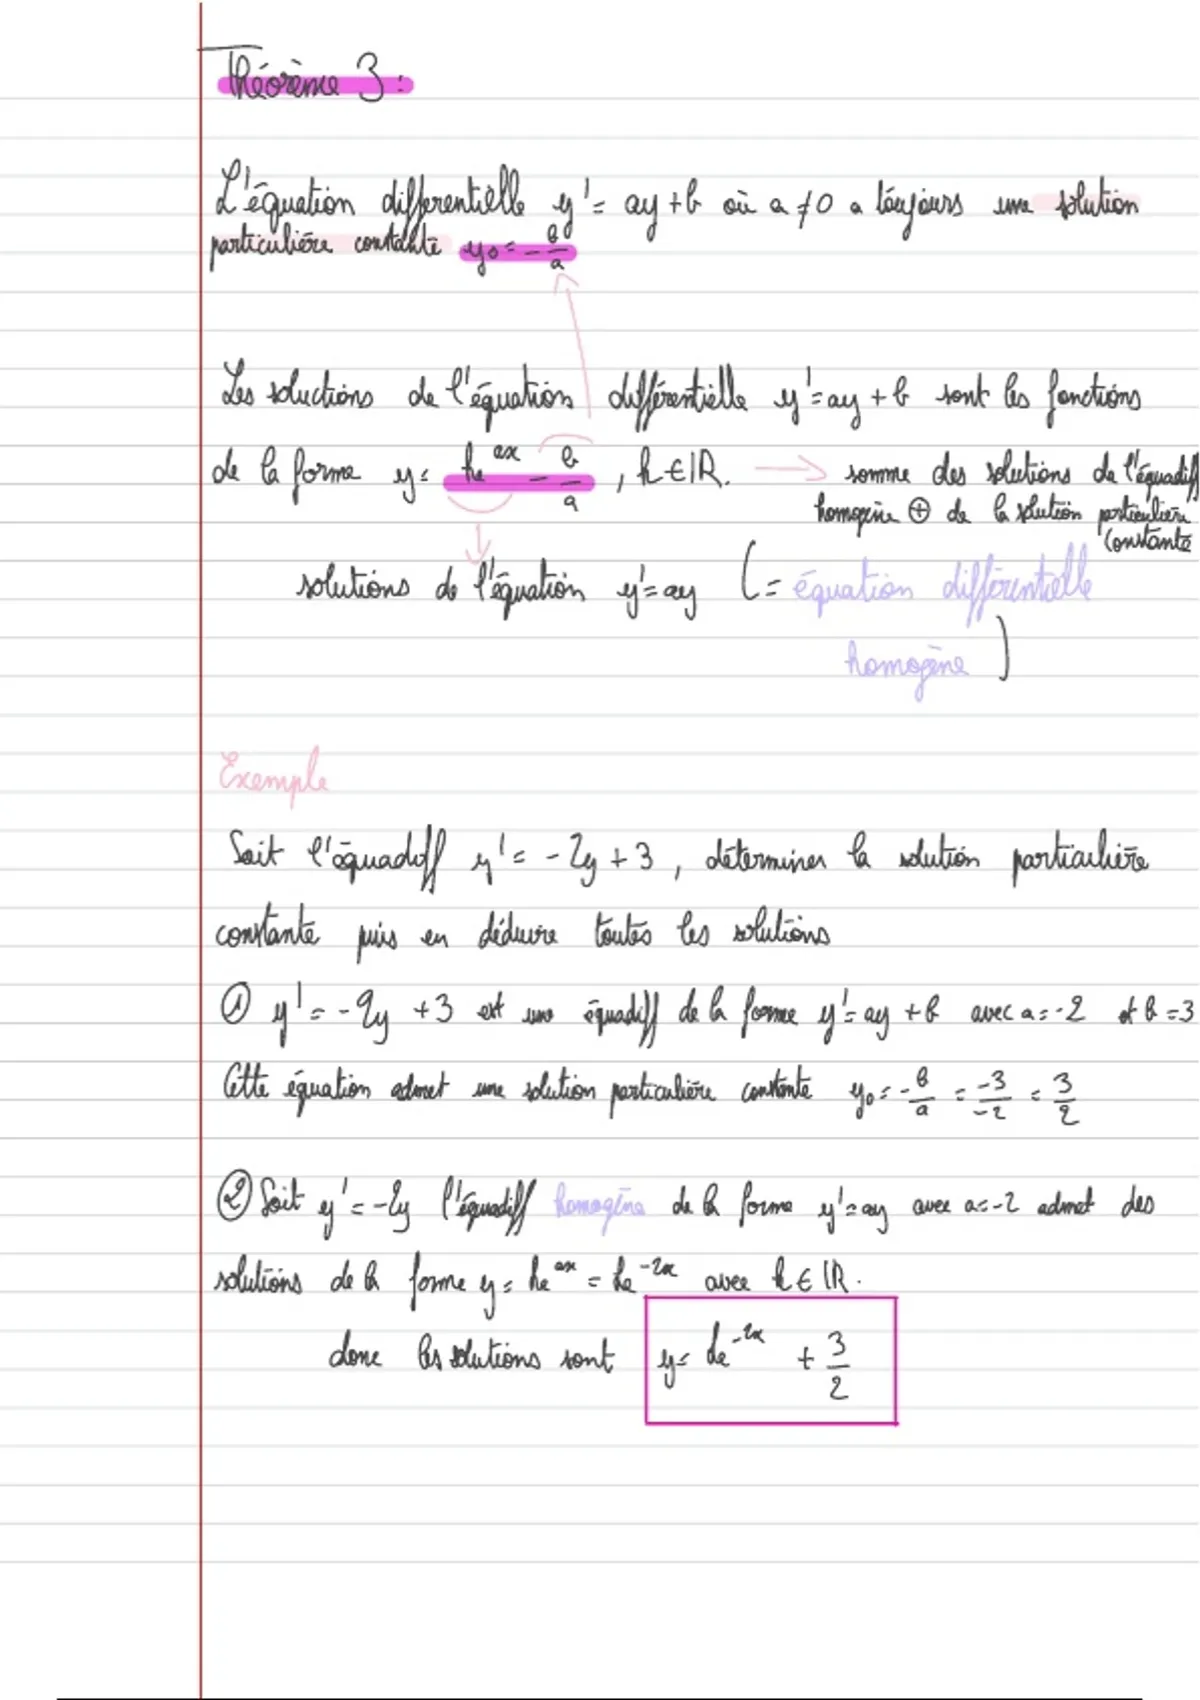 Théorème 3 :
L'équation differentielle y' = ay + b où a ≠ 0 a toujours une solution
particulière constante y₀ = - b/a
Les soluctions de l'équation différentielle y' = ay + b sont les fonctions
de la forme y = ke^ax - b/a , k ∈ ℝ. → somme des solutions de l'équadiff
homogène ⊕ de la solution particulière
constante
solutions de l'équation y' = ay (= équation différentielle
homogène)
Exemple
Soit l'équadiff y' = -2y + 3, déterminer la solution particulière
constante puis en déduire toutes les solutions
① y' = -2y + 3 est une équadiff de la forme y' = ay + b avec a = -2 et b = 3
Cette équation admet une solution particulière constante y₀ = - b/a = -3/-2 = 3/2
② Soit y' = -2y l'équadiff homogène de la forme y' = ay avec a = -2 admet des
solutions de la forme y = ke^ax = ke^-2x avec k ∈ ℝ.
donc les solutions sont y = ke^-2x + 3/2